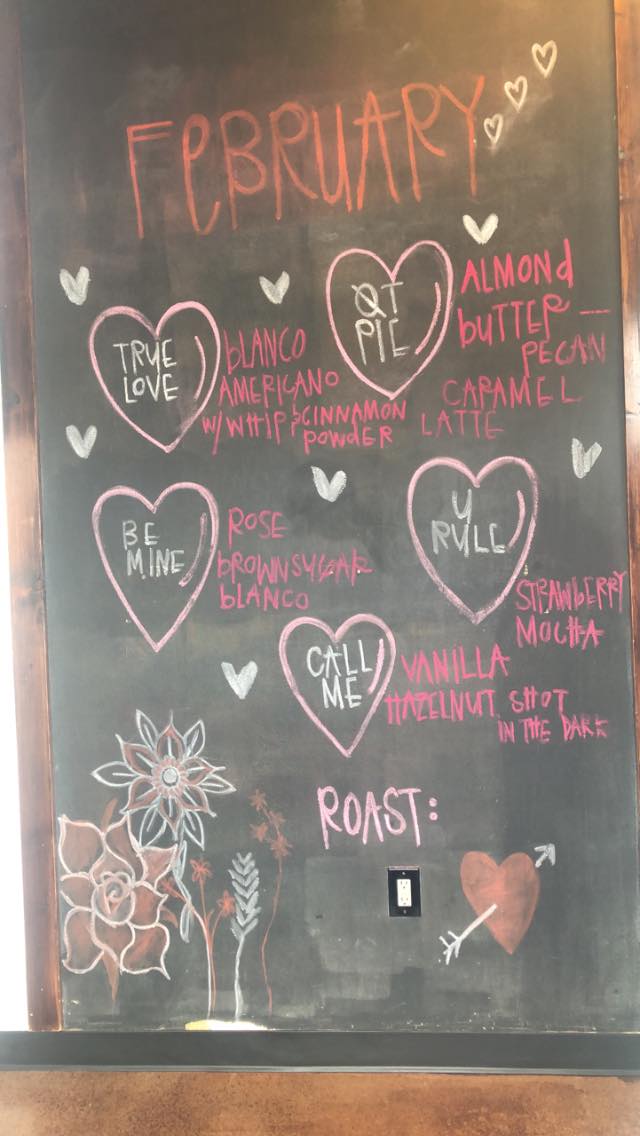 FEBRUARY
TRUE
LOVE
BLANCO
AMERICANO
W/ WHIP & CINNAMON
POWDER
QT
PIE
ALMOND
BUTTER —
PECAN
CARAMEL
LATTE
BE
MINE
ROSE
BROWN SUGAR
BLANCO
U
RULE
STRAWBERRY
MOCHA
CALL
ME
VANILLA
HAZELNUT SHOT
IN THE DARK
ROAST: